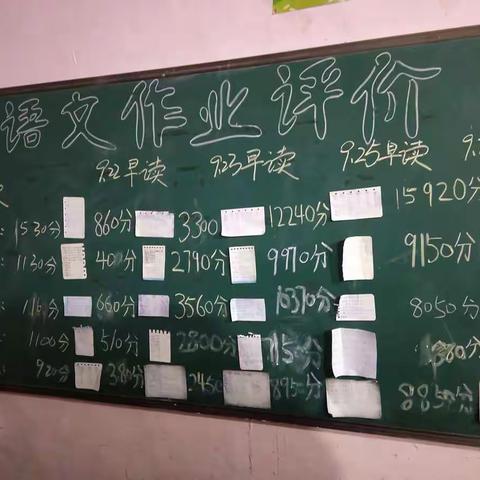 语文作业评价
9.22早读 9.23早读 9.25早读
1530分 860分 3300 12240分 15920分
1130分 400分 2790分 9970分 9150分
660分 3560分 10370分 8050分
1100分 510分 2800分
920分 380分 2450 8950分 8850分